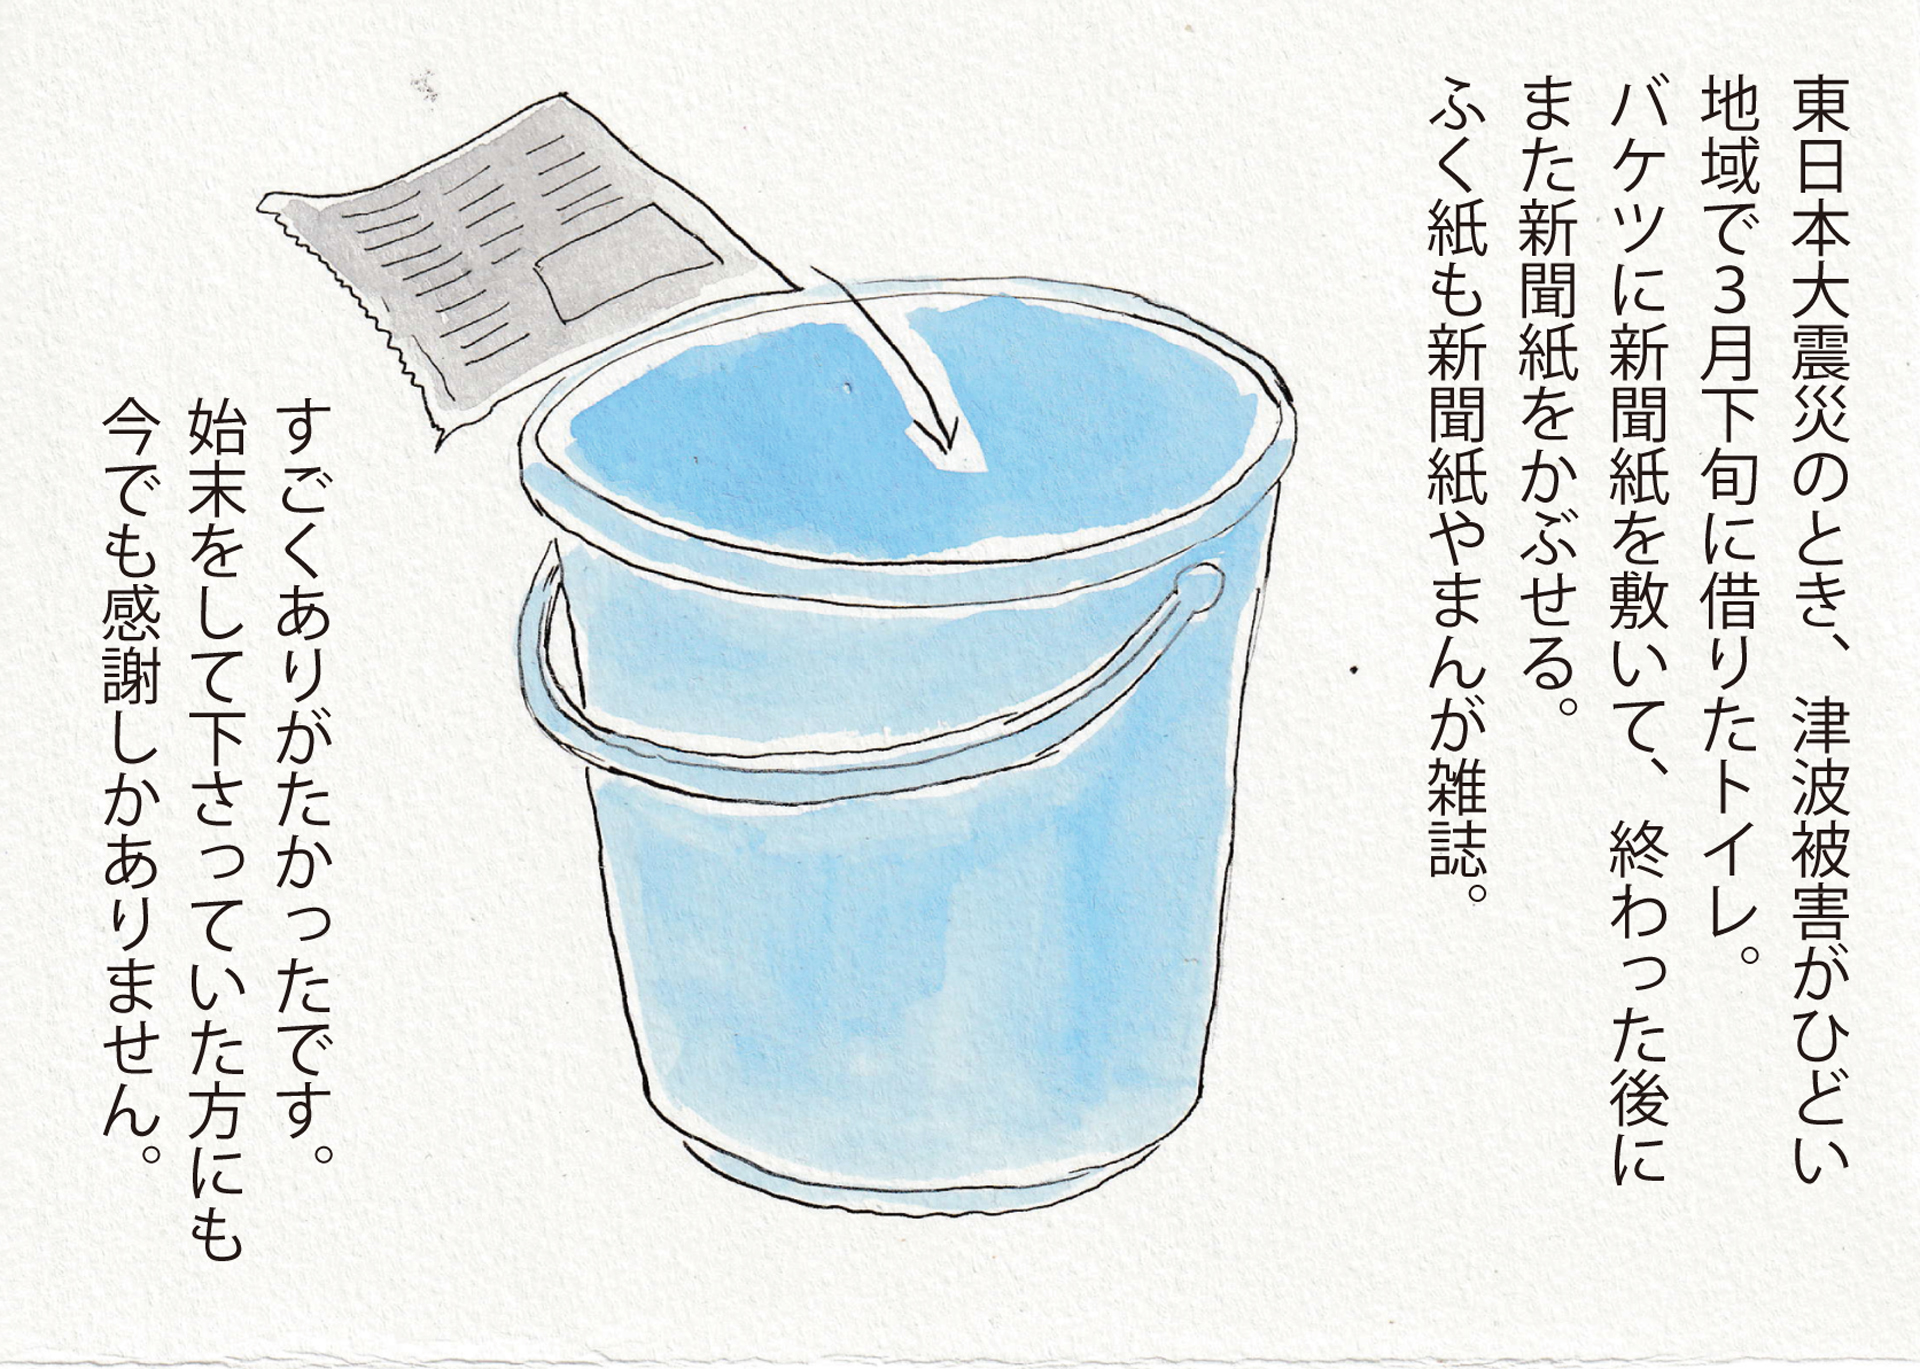 東日本大震災のとき、津波被害がひどい
地域で３月下旬に借りたトイレ。
バケツに新聞紙を敷いて、終わった後に
また新聞紙をかぶせる。
ふく紙も新聞紙やまんが雑誌。
すごくありがたかったです。
始末をして下さっていた方にも
今でも感謝しかありません。